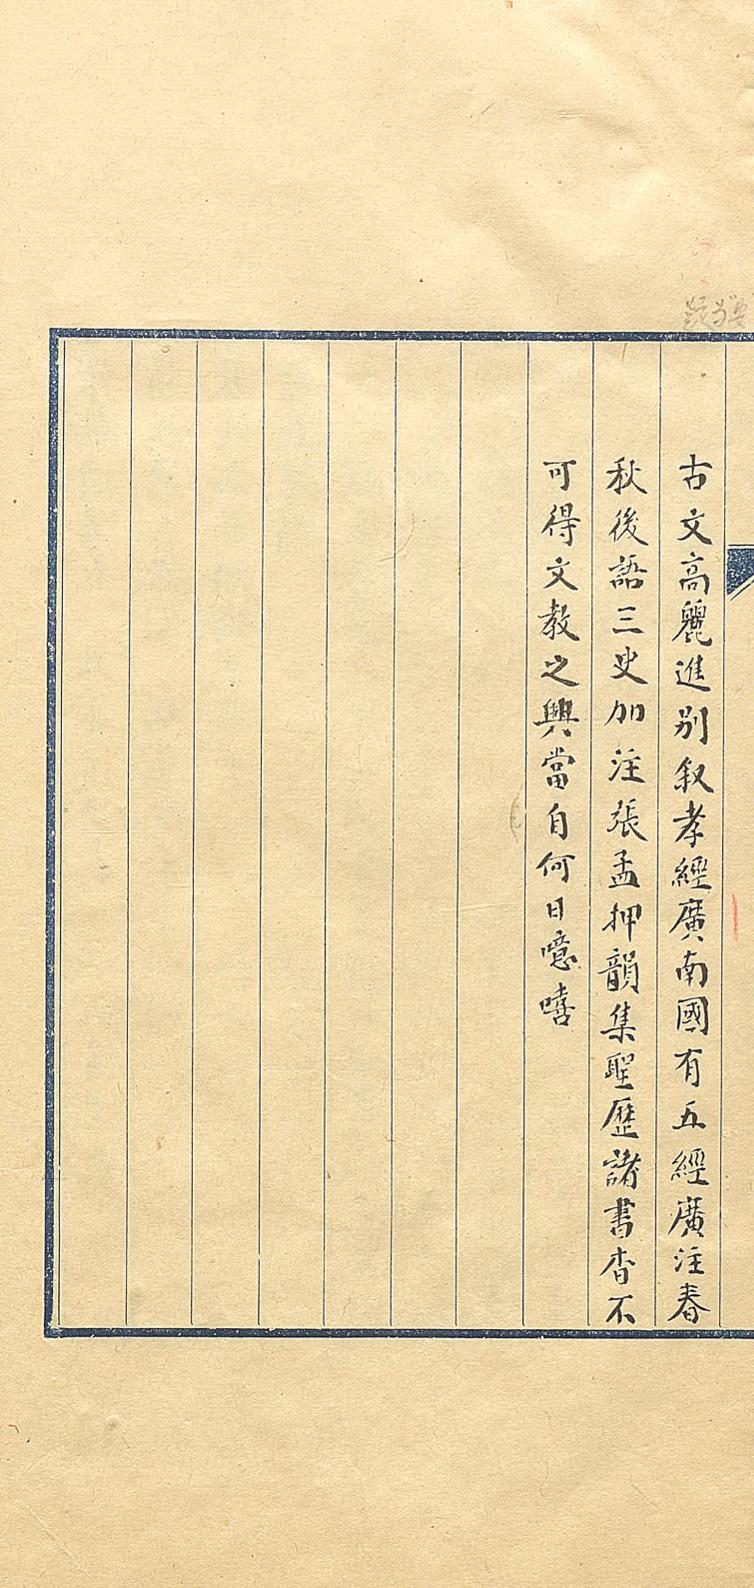 古文高麗進别叙孝經廣南國有五經廣注春
秋後語三史加注張孟押韻集聖歷諸書杳不
可得文教之興當自何日噫嘻